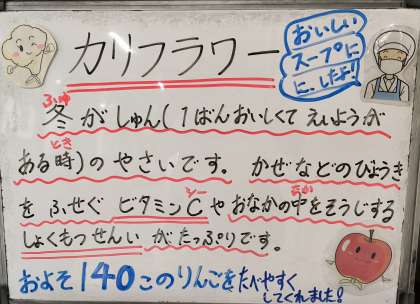 カリフラワー
おいしい
スープに
に、したよ!
冬がしゅん(1ばんおいしくてえいようが
ふゆ
ある時)のやさいです。 かぜなどのびょうき
とき
をふせぐビタミンCやおなかの中をそうじする
シー
なか
しょくもつせんいがたっぷりです。
およそ140このりんごをたべやすく
してくれました!